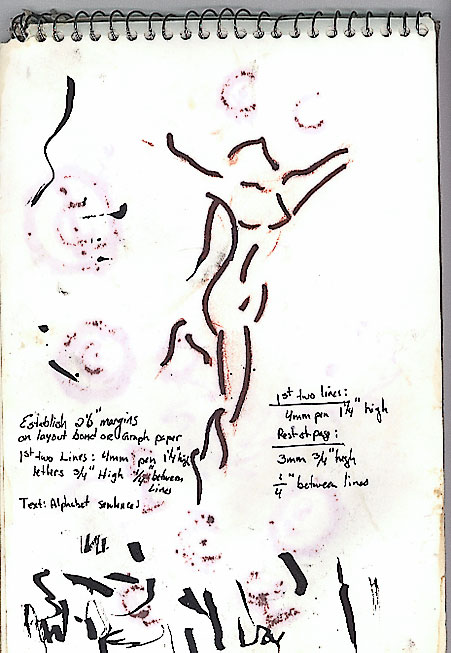 Establish 2½" margins
on layout bond or Graph paper
1st two Lines: 4mm pen 1¼" high
letters 3/4" High ¼" between
Lines
Text: Alphabet sentences
1st two lines:
4mm pen 1¼" high
Rest of pag:
3mm 3/4" high
¼" between lines